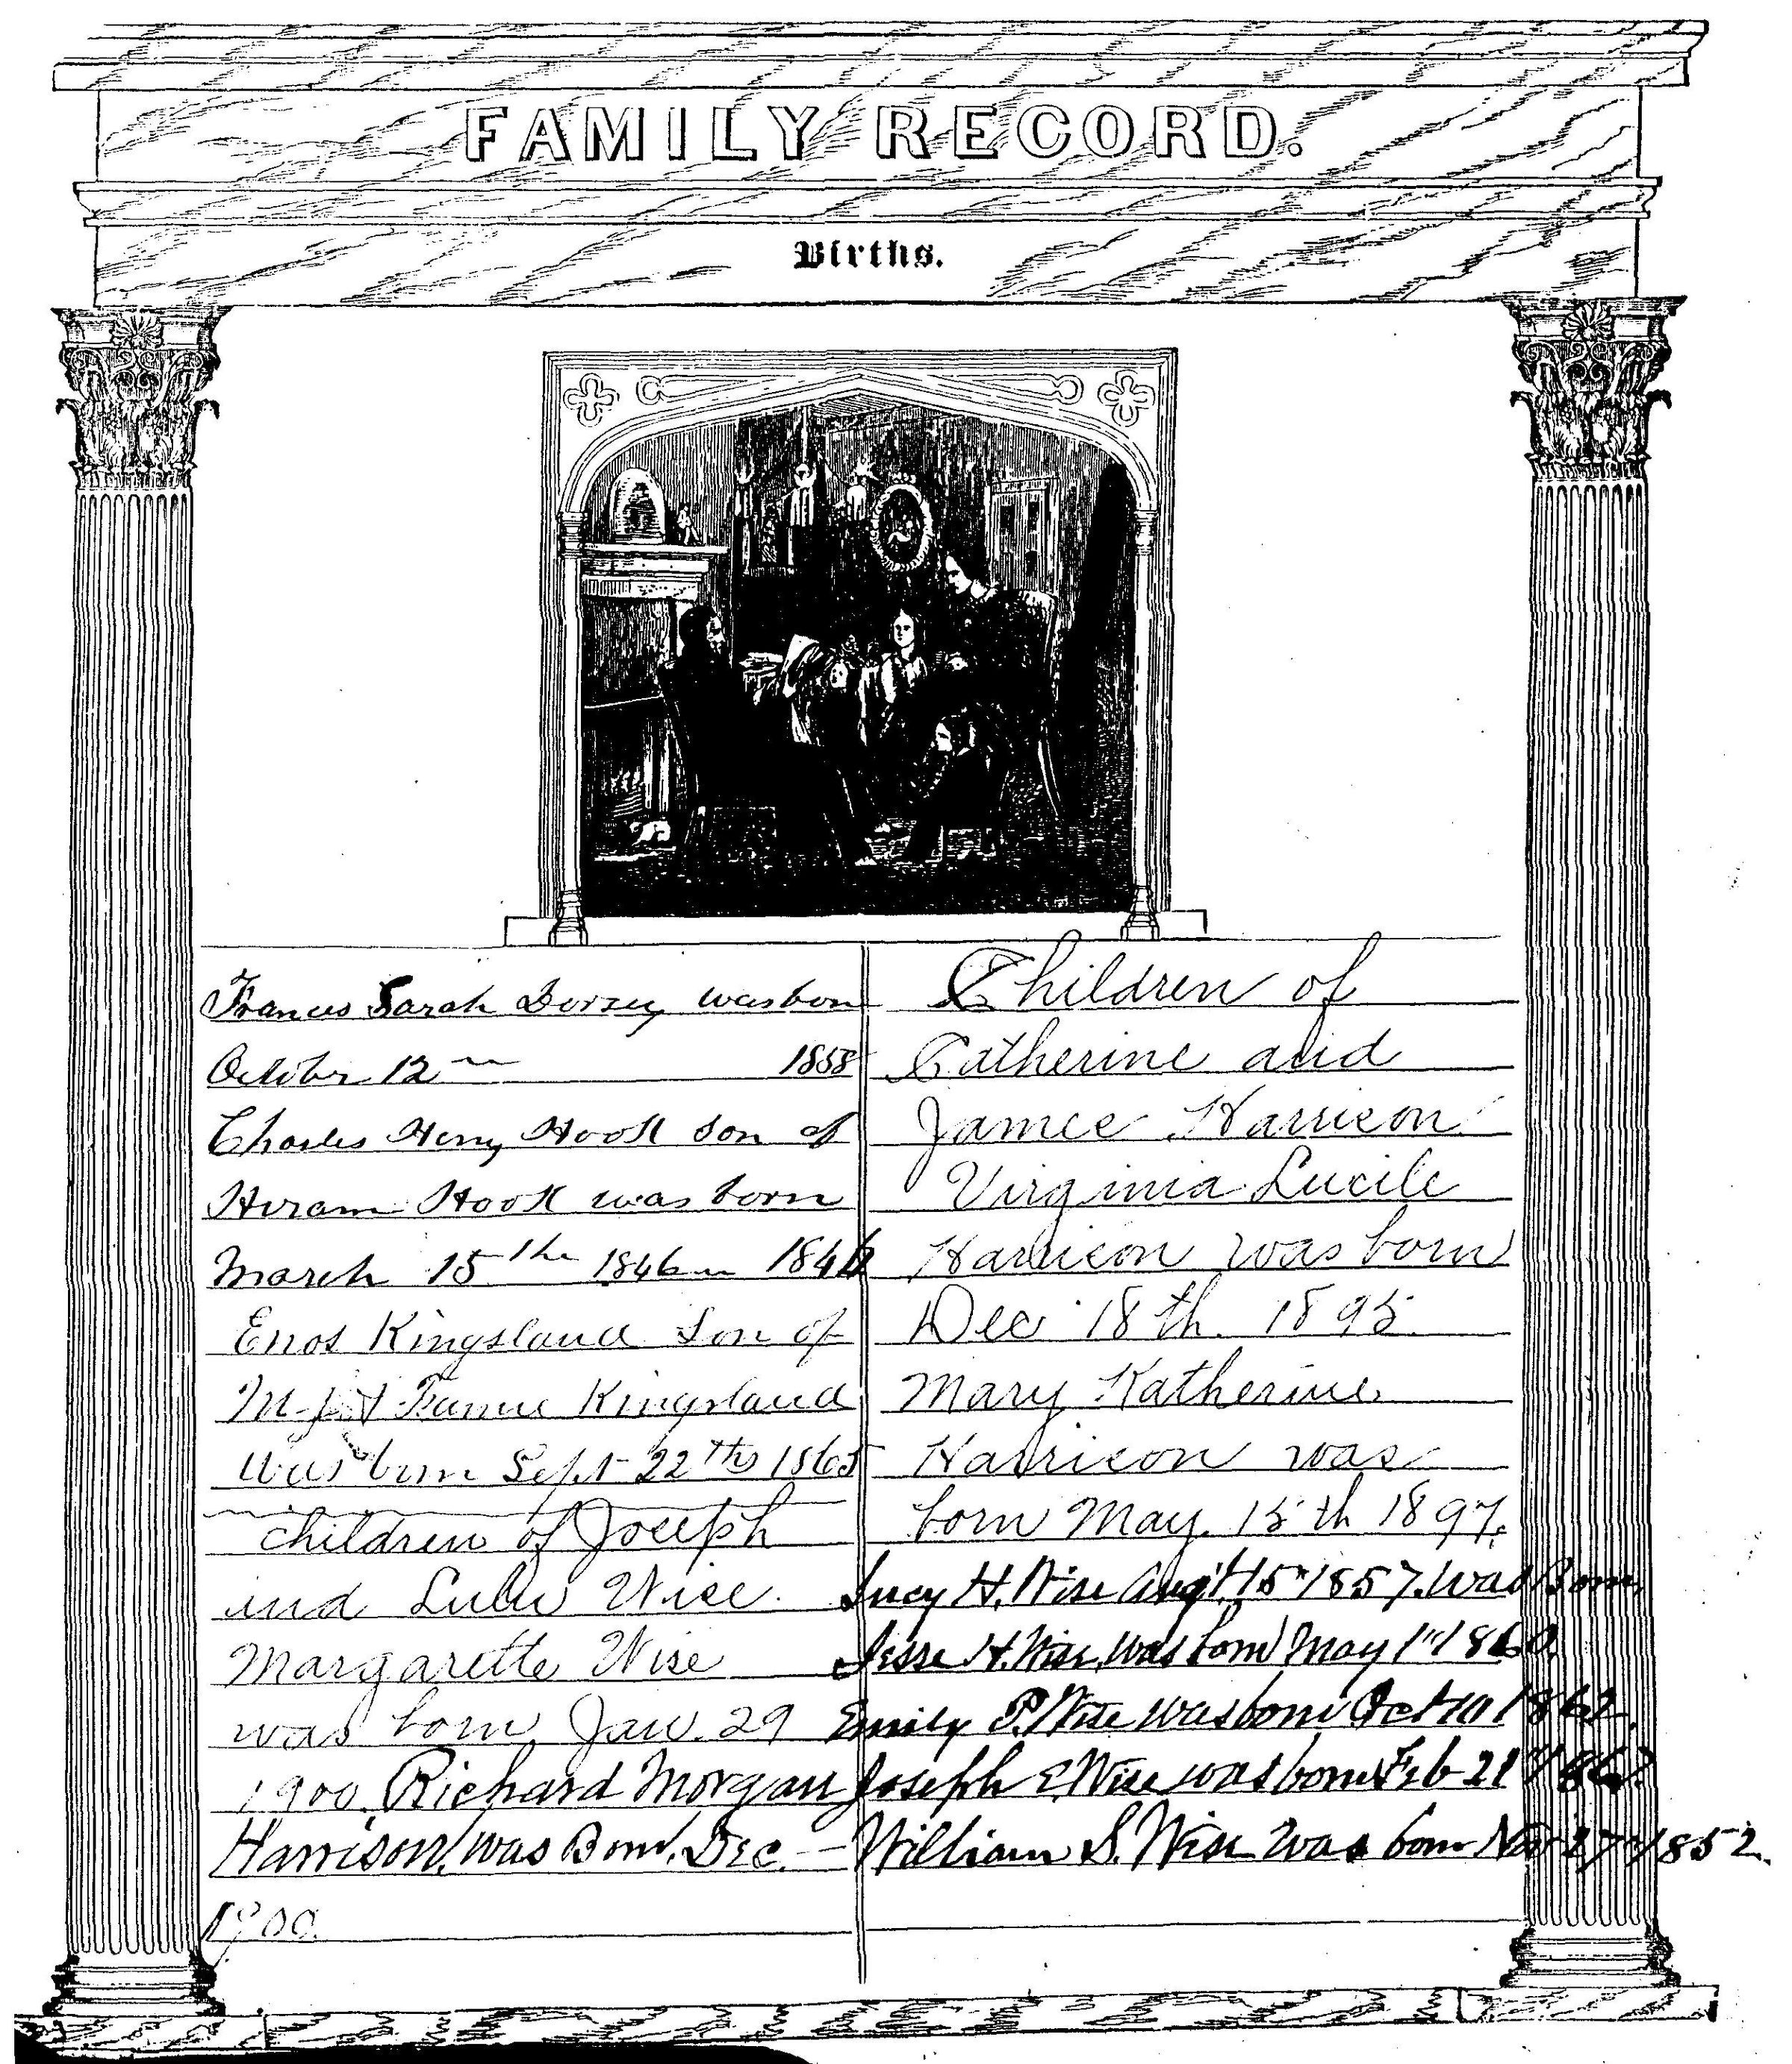 FAMILY RECORD.
Births.
Frances Sarah Dorsey was born
October 12th 1858
Charles Henry Hook son of
Hiram Hook was born
March 15th 1846
Enos Kingsland Son of
M. J. & Fannie Kingsland
was born Sept 22th 1865
children of Joseph
and Lulu Wise.
Margarette Wise
was born Jan. 29
1900. Richard Morgan
Harrison, was Born, Dec. —
1900.
Children of
Catherine and
James Harrison
Virginia Lucile
Harrison was born
Dec 18th. 1895.
Mary Katherine
Harrison was
born May. 15th 1897.
Lucy H. Wise Aug't 15th 1857. was Born
Jesse H. Wise, was born May 1st 1860.
Emily P. Wise was born Oct 10 1862.
Joseph E. Wise was born Feb 21st
William S. Wise was born Nov 27th 1852.